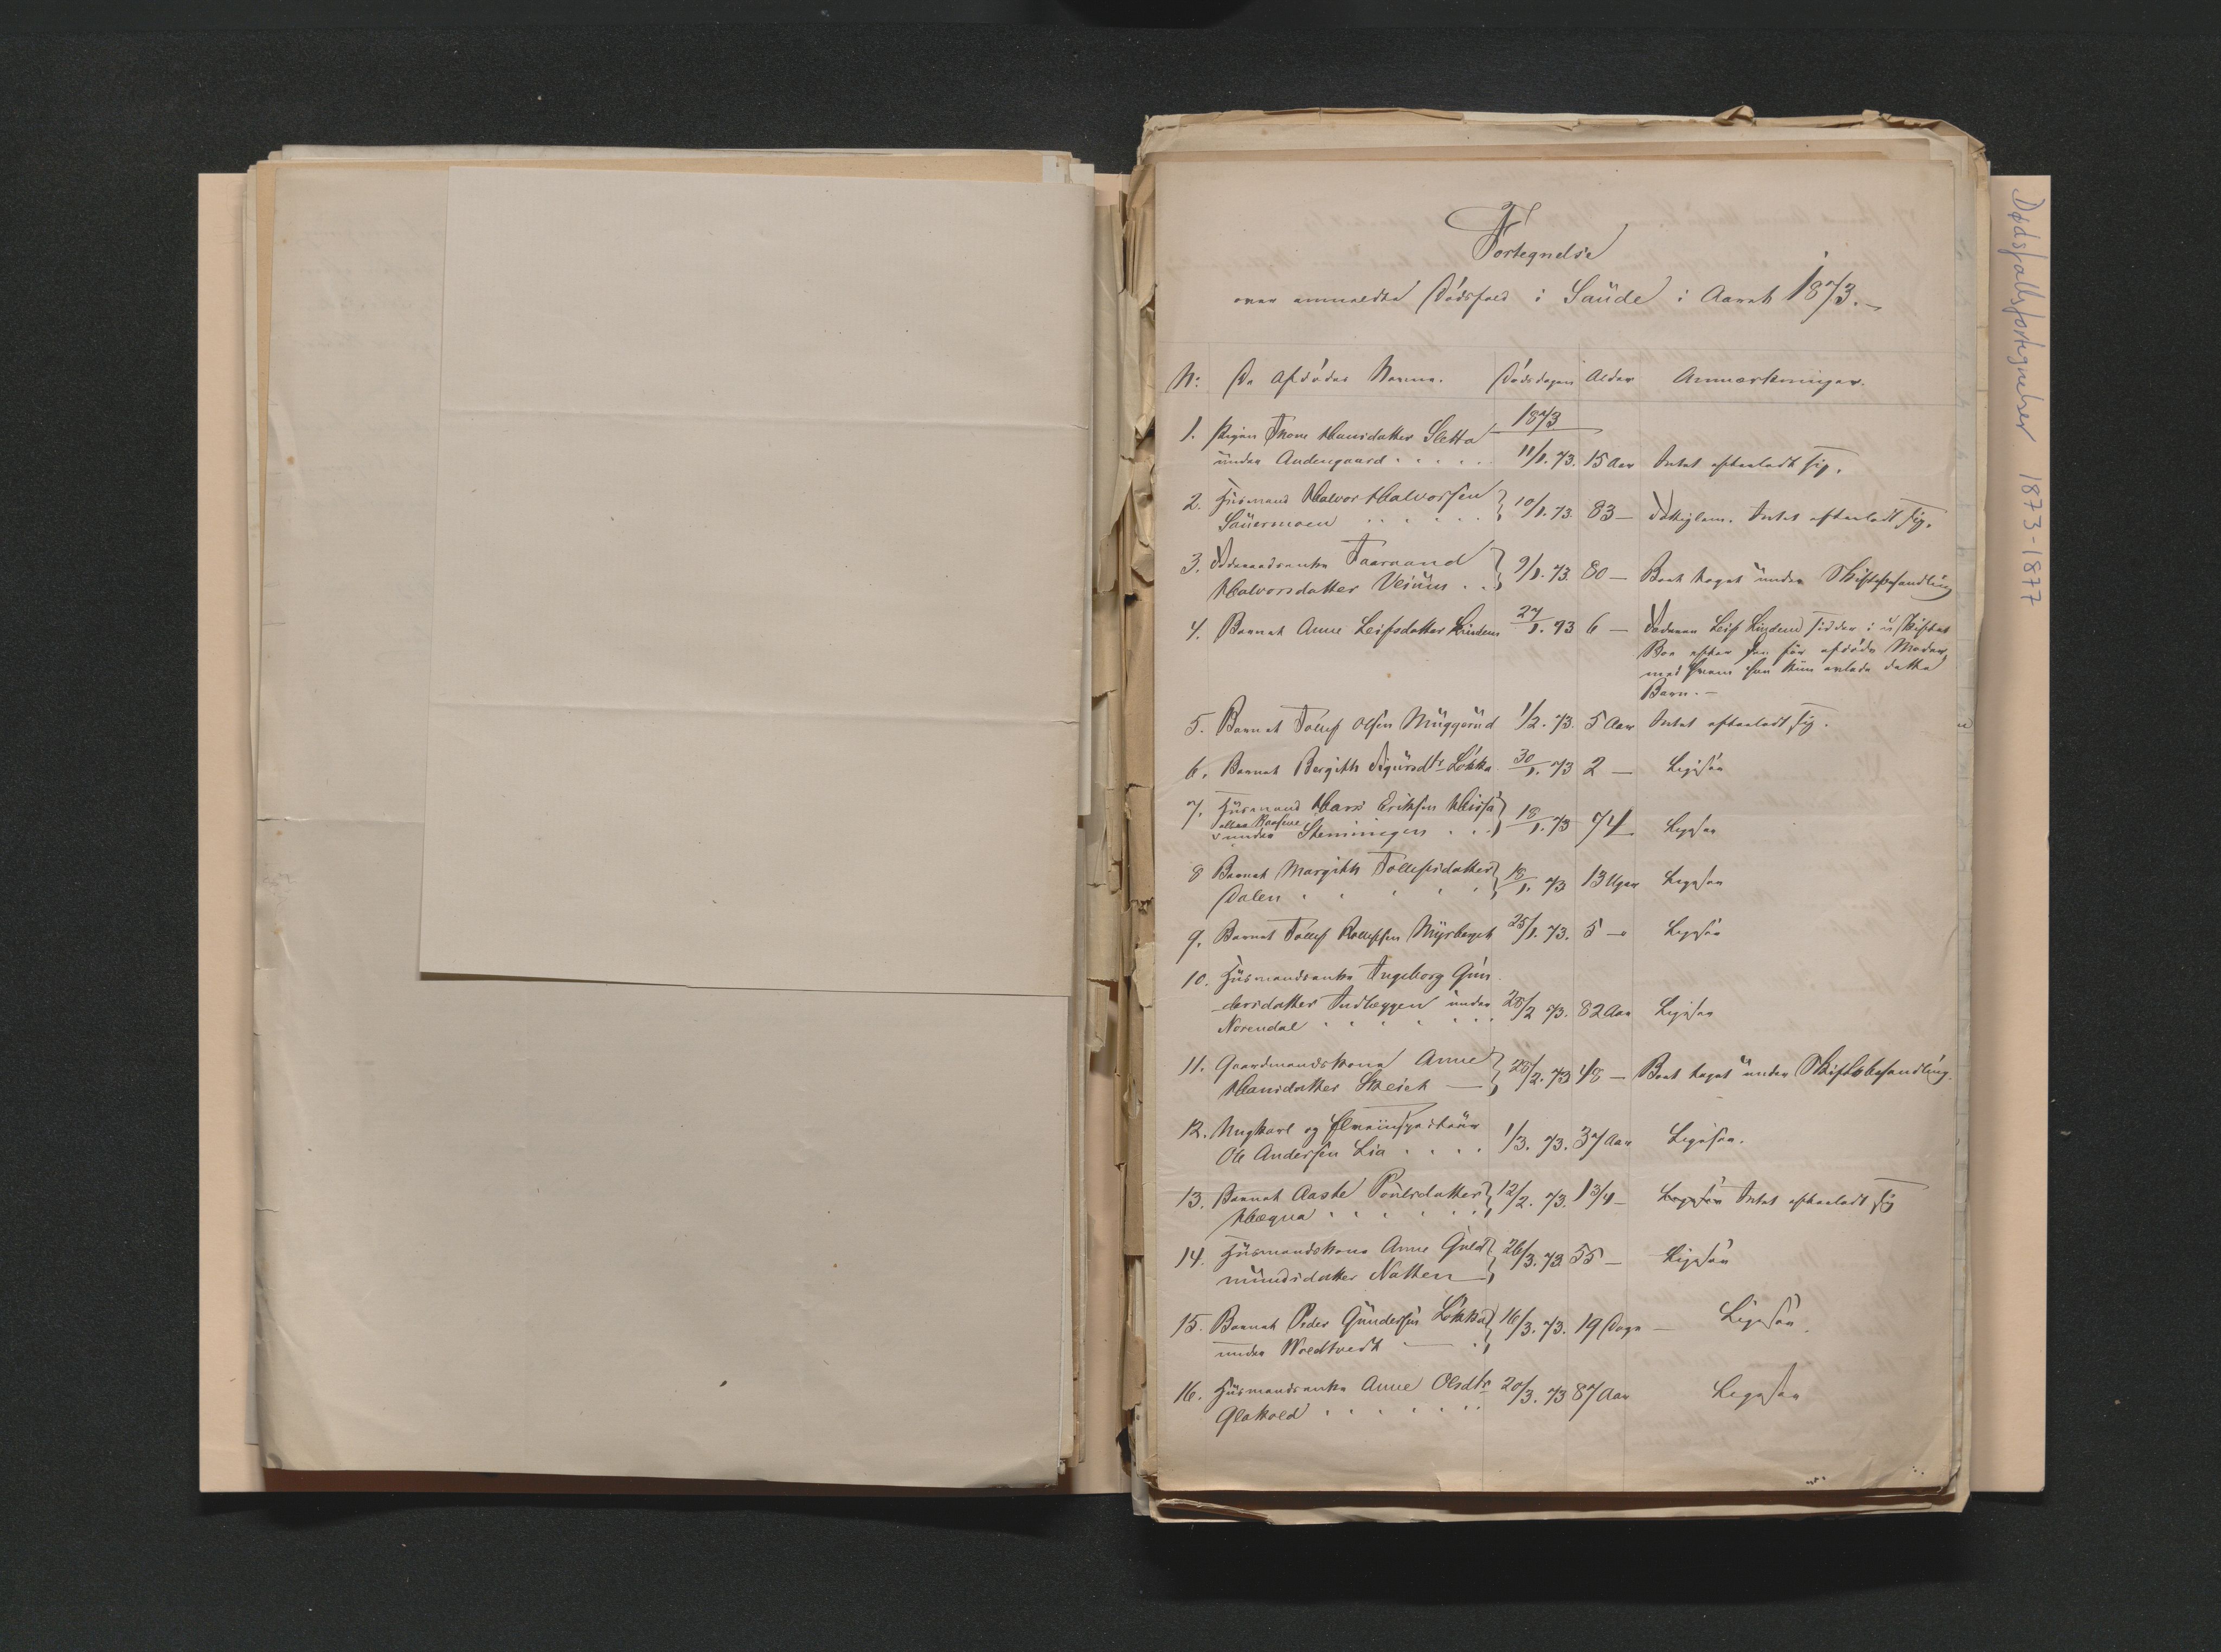 Fortegnelse
over anmeldte Dødsfald i Saude i Aaret 1873.-
No. De Afdødes Navne. Dødsdagen Alder Anmærkninger.
1873
1. Pigen Thone Hansdatter Sletta
under Audengaard 11/1. 73. 15 Aar Intet efterladt sig.
2. Husmand Halvor Halvorsen
Sauermoen 10/1. 73. 83 — Fattiglem. Intet efterladt sig.
3. Taarand
Halvorsdatter Veium 9/1. 73. 80 — Boet taget under Skiftebehandling
4. Barnet Anne Leifsdatter Linden 27/1. 73 6 — Faderen Leif Linden sidder i uskiftet
Boe efter sin før afdøde Moder,
med hvem han kun avlede dette
Barn. -
5. Barnet Tollef Olsen Muggerud 1/2. 73. 5 Aar Intet efterladt sig.
6. Barnet Bergith Sigursdtr Løkka 30/1. 73 2 — Ligesaa
7. Husmand Hans Eriksen
under Stenningen 18/1. 73 74 Ligesaa
8 Barnet Margith Tollefsdatter
Dalen 18/1. 73 13 Uger Ligesaa
9. Barnet Tollef Rollefsen Myrberget 25/1. 73. 5 — Ligesaa
10. Husmandsenke Ingeborg Gun-
dersdatter Indlæggen under
Norendal 28/2 73. 82 Aar Ligesaa
11. Gaardmandskone Anne
Hansdatter Skeick 28/2. 73 48 — Boet taget under Skiftebehandling.
12. Ungkarl og
Ole Andersen Lia 1/3. 73. 37 Aar Ligesaa.
13. Barnet Aaste Poulsdatter
Hægna 12/2. 73. 1 3/4 — Ligesaa Intet efterladt sig
14. Husmandskone Anne Guld-
mundsdatter Natten 26/3. 73 55 — Ligesaa
15. Barnet Peder Gundersen Løkka
under Woldtvedt 16/3. 73. 19 Dage — Ligesaa
16. Husmandsenke Anne Olsdtr
Glakold 20/3. 73 87 Aar Ligesaa
Dødsfallsfortegnelser 1873-1877